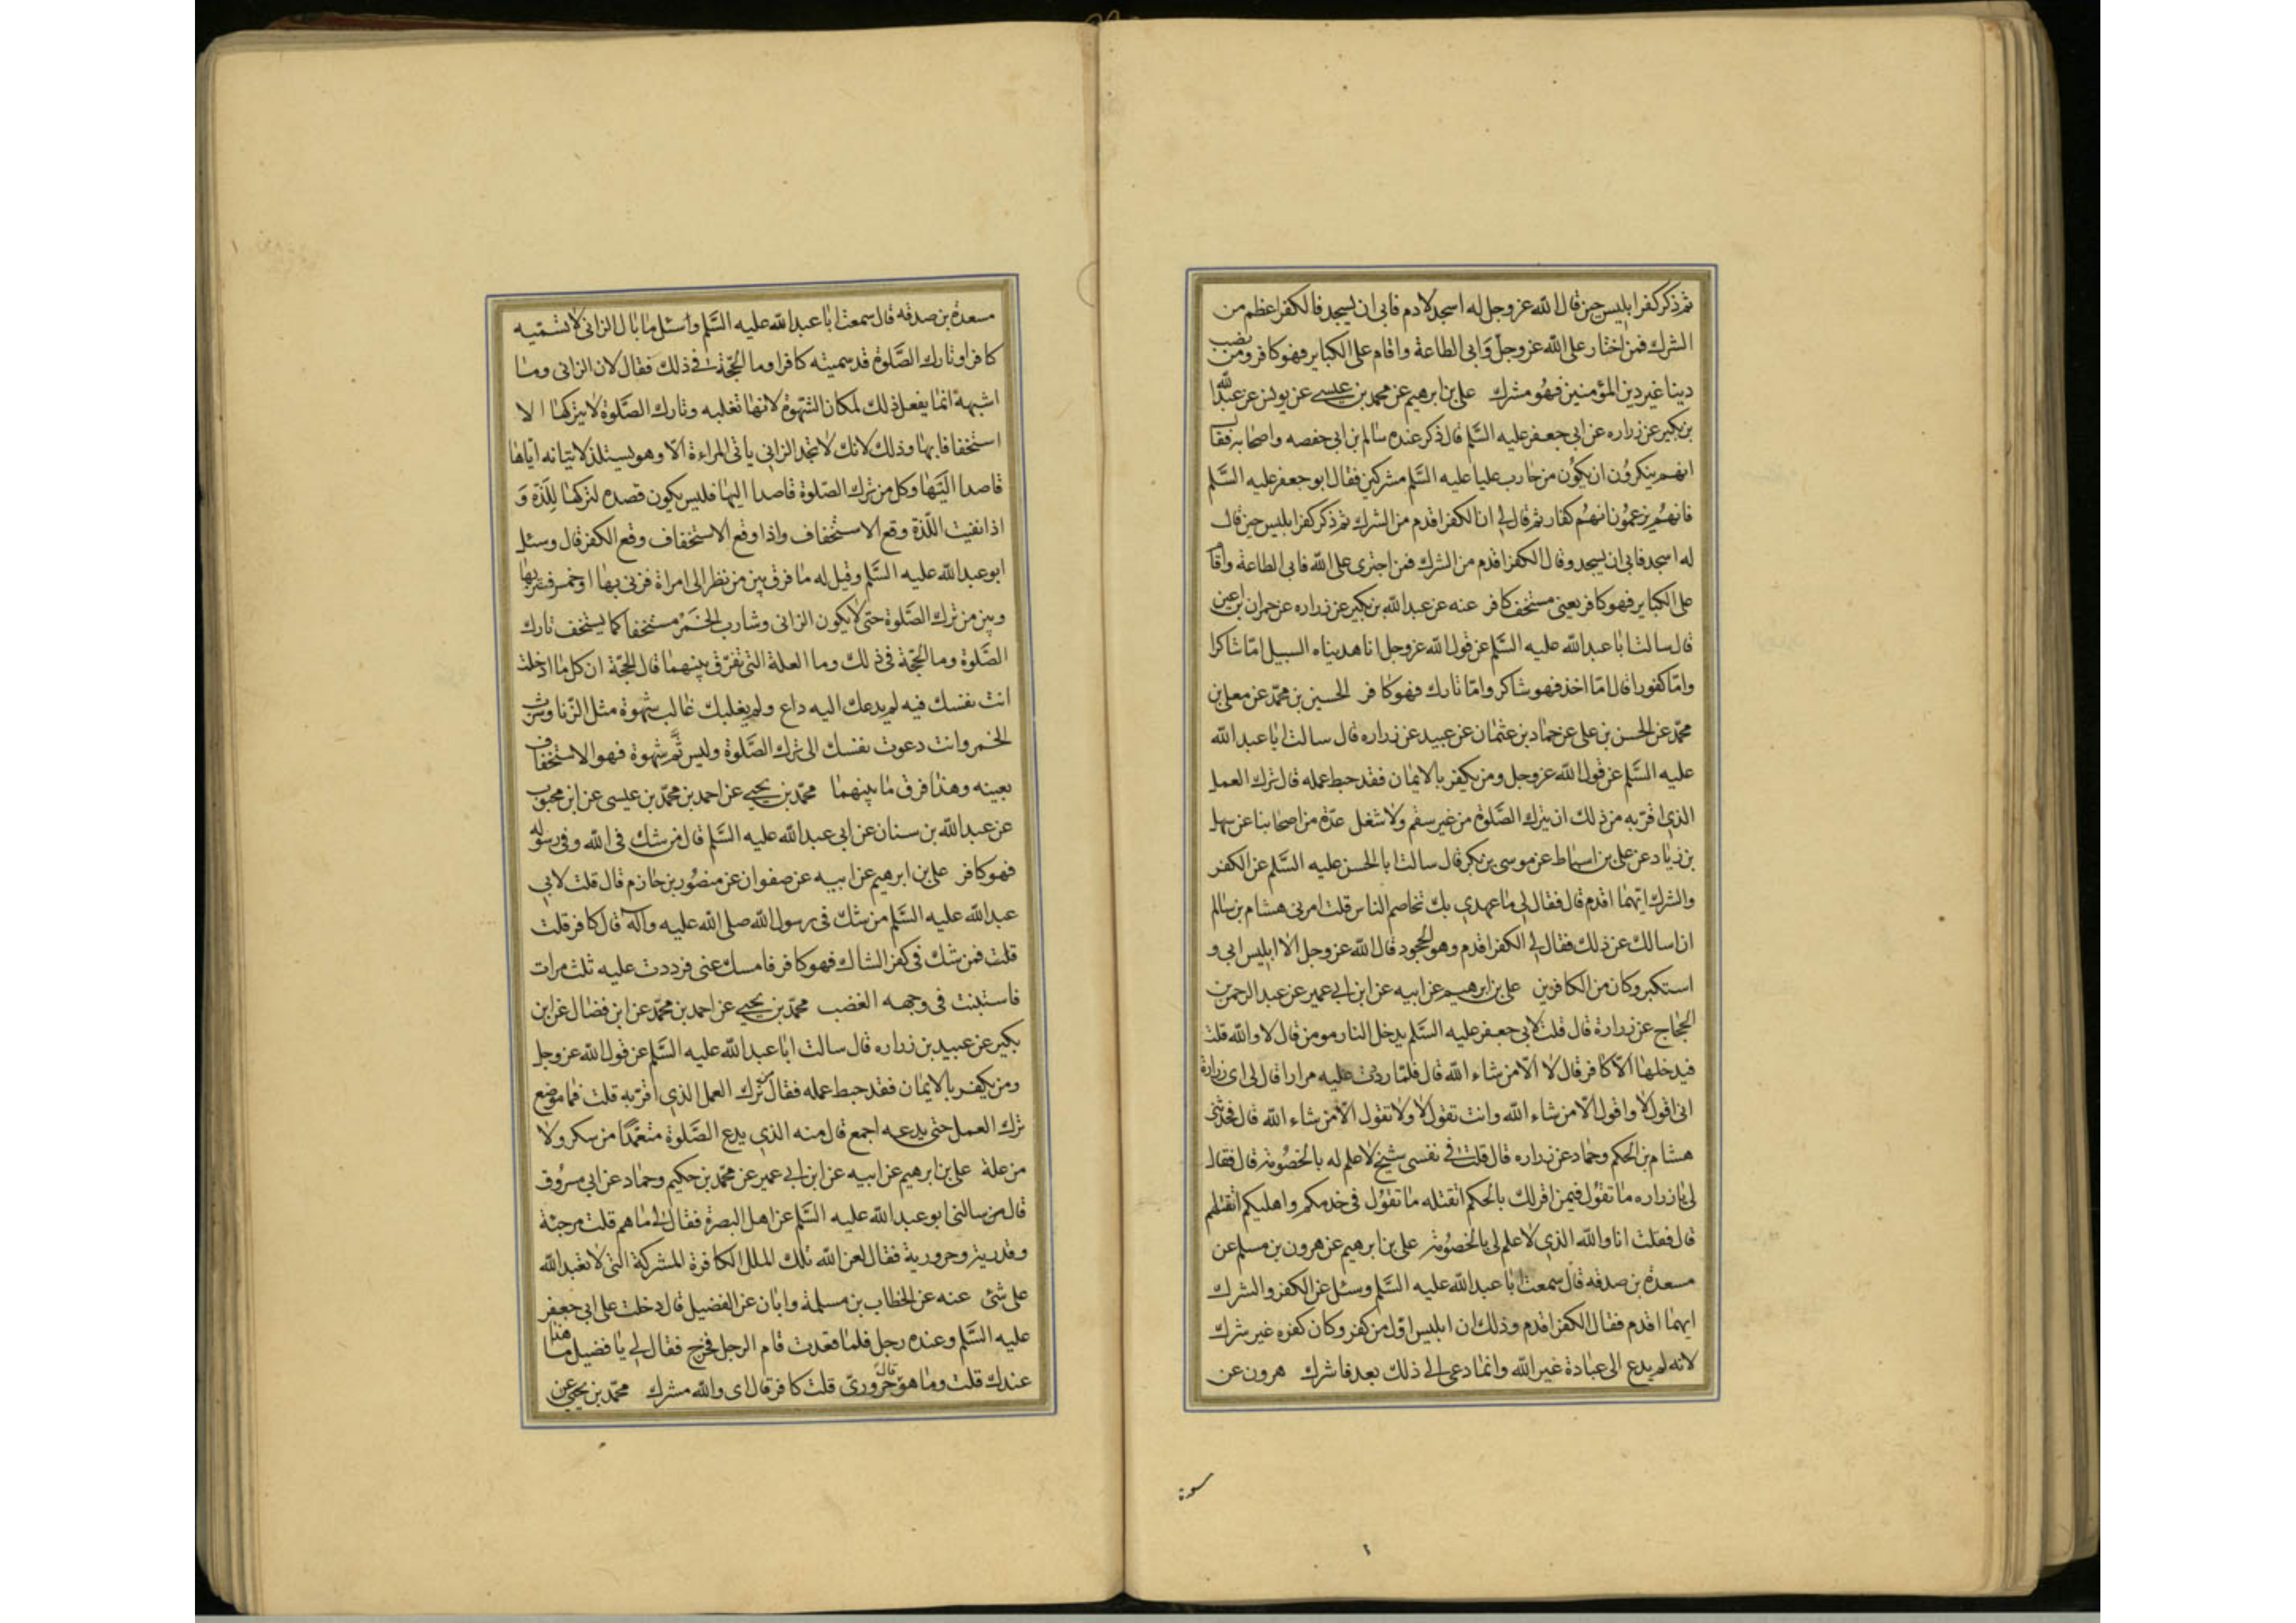 ثم ذكر كفر ابليس حين قال الله عز وجل له اسجد لادم فابى ان يسجد فالكفر اعظم من
الشرك فمن اختار على الله عز وجل وابى الطاعة واقام على الكباير فهو كافر ومن نصب
دينا غير دين المؤمنين فهو مشرك علي بن ابرهيم عن محمد بن عيسى عن يونس عن عبد الله
بن بكير عن زراره عن ابي جعفر عليه السلم قال ذكر عنده سالم بن ابي حفصه واصحابه فقال
انهم ينكرون ان يكون من حارب عليا عليه السلم مشركين فقال ابو جعفر عليه السلم
فانهم يزعمون انهم كفار ثم قال لي ان الكفر اقدم من الشرك ثم ذكر كفر ابليس حين قال
له اسجد فابى ان يسجد وقال الكفر اقدم من الشرك فمن اجترى على الله فابى الطاعة واقام
على الكباير فهو كافر يعني مستخف كافر عنه عن عبد الله بن بكير عن زراره عن حمران بن اعين
قال سالت ابا عبد الله عليه السلم عن قول الله عز وجل انا هديناه السبيل امّا شاكرا
وامّا كفورا قال امّا اخذ فهو شاكر وامّا تارك فهو كافر الحسين بن محمّد عن معلى بن
محمّد عن الحسن بن علي عن حماد بن عثمان عن عبيد عن زراره قال سالت ابا عبد الله
عليه السّلم عن قول الله عز وجل ومن يكفر بالايمان فقد حبط عمله قال ترك العمل
الذي اقرّ به من ذلك ان يترك الصّلوة من غير سقم ولا شغل عدّة من اصحابنا عن سهل
بن زياد عن علي بن اسباط عن موسى بن بكر قال سالت ابا الحسن عليه السّلم عن الكفر
والشرك ايّهما اقدم قال فقال لي ما عهدي بك تخاصم الناس قلت امرني هشام بن سالم
ان اسالك عن ذلك فقال لي الكفر اقدم وهو الجحود قال الله عز وجل الا ابليس ابى و
استكبر وكان من الكافرين علي بن ابرهيم عن ابيه عن ابن ابي عمير عن عبد الرحمن بن
الحجاج عن زرارة قال قلت لابي جعفر عليه السّلم يدخل النار مومن قال لا والله قلت
فيدخلها الّا كافر قال لا الّا من شاء الله قال فلمّا رددت عليه مرارا قال لي اى زرارة
اني اقول لا واقول الّا من شاء الله وانت تقول لا ولا تقول الّا من شاء الله قال فحدّثني
هشام بن الحكم وحماد عن زراره قال قلت في نفسي شيخ لا علم له بالخصومة قال فقال
لي يا زراره ما تقول فيمن اقر لك بالحكم اتقتله ما تقول في خدمكم واهليكم اتقتلهم
قال فقلت انا والله الذي لا علم لي بالخصومة علي بن ابرهيم عن هرون بن مسلم عن
مسعدة بن صدقه قال سمعت ابا عبد الله عليه السّلم وسئل عن الكفر والشرك
ايهما اقدم فقال الكفر اقدم وذلك ان ابليس اوّل من كفر وكان كفره غير شرك
لانه لم يدع الى عبادة غير الله وانما دعى الى ذلك بعد فاشرك هرون عن
مسعدة بن صدقه قال سمعت ابا عبد الله عليه السّلم وسئل ما بال الزاني لا تسميه
كافرا وتارك الصّلوة قد سميته كافرا وما الحجّة في ذلك فقال لان الزاني وما
اشبهه انما يفعل ذلك لمكان الشهوة لانها تغلبه وتارك الصّلوة لا يتركها الا
استخفافا بها وذلك لانك لا تجد الزاني ياتي المراءة الّا وهو يستلذ لاتيانه اياها
قاصدا اليها وكل من ترك الصّلوة قاصدا اليها فليس يكون قصده لتركها للذّة و
اذا نفيت اللّذة وقع الاستخفاف واذا وقع الاستخفاف وقع الكفر قال وسئل
ابو عبد الله عليه السّلم وقيل له ما فرق بين من نظر الى امراة فزنى بها او خمر فشربها
وبين من ترك الصّلوة حتى لا يكون الزاني وشارب الخمر مستخفا كما يستخف تارك
الصّلوة وما الحجّة في ذلك وما العلة التي تفرّق بينهما قال الحجّة ان كل ما ادخلت
انت نفسك فيه لم يدعك اليه داع ولم يغلبك غالب شهوة مثل الزّنا وشرب
الخمر وانت دعوت نفسك الى ترك الصّلوة وليس ثمّ شهوة فهو الاستخفاف
بعينه وهذا فرق ما بينهما محمّد بن يحيى عن احمد بن محمّد بن عيسى عن ابن محبوب
عن عبد الله بن سنان عن ابي عبد الله عليه السّلم قال من شك في الله وفي رسوله
فهو كافر علي بن ابرهيم عن ابيه عن صفوان عن منصور بن حازم قال قلت لابي
عبد الله عليه السّلم من شك في رسول الله صلى الله عليه وآله قال كافر قلت
قلت فمن شك في كفر الشاك فهو كافر فامسك عني فرددت عليه ثلث مرات
فاستبنت في وجهه الغضب محمّد بن يحيى عن احمد بن محمّد عن ابن فضال عن ابن
بكير عن عبيد بن زراره قال سالت ابا عبد الله عليه السّلم عن قول الله عز وجل
ومن يكفر بالايمان فقد حبط عمله فقال ترك العمل الذي اقرّ به قلت فما موضع
ترك العمل حتى يدعه اجمع قال منه الذي يدع الصّلوة متعمّدا من سكر ولا
من علة علي بن ابرهيم عن ابيه عن ابن ابي عمير عن محمّد بن حكيم وحماد عن ابي مسروق
قال من سالني ابو عبد الله عليه السّلم عن اهل البصرة فقال لي ما هم قلت مرجئة
وقدرية وحرورية فقال لعن الله تلك الملل الكافرة المشركة التي لا تعبد الله
على شئ عنه عن الخطاب بن مسلمة وابان عن الفضيل قال دخلت على ابي جعفر
عليه السّلم وعنده رجل فلما قعدت قام الرجل فخرج فقال لي يا فضيل ما هذا
عندك قلت وما هو قال حروريّ قلت كافر قال اى والله مشرك محمّد بن يحيى عن